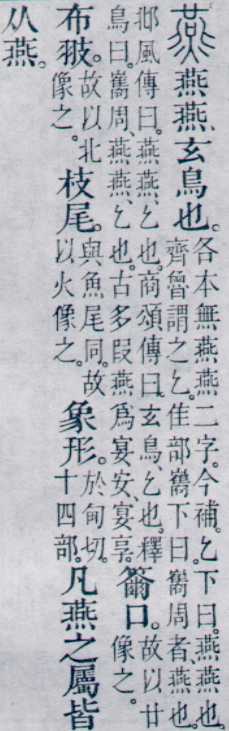 燕燕燕、玄鳥也。各本無燕燕二字。今補。乙下曰。燕燕也。齊魯謂之乙。隹部巂下曰。巂周者、燕也。
邶風傳曰。燕燕、乙也。商頌傳曰。玄鳥、乙也。釋鳥曰。巂周、燕燕、乙也。古多叚燕爲宴安、宴享。籋口。故以廿像之。
布翄。故以北像之。枝尾。與魚尾同。故以火像之。象形。於甸切。十四部。凡燕之屬皆
从燕。